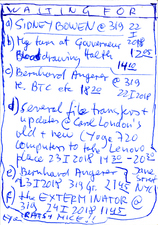 WAITING FOR
a) SIDNEY BOWEN @ 319 22 I 2018
b) My turn at Gouverneur 1205
Blood drawing Health
1400
c) Bernhard Angerer @ 319
re. BTC etc 1820 22 I 2018
d) several file transfers +
update @ Carl London's
old + new (Yoga 720
computers to take Lenovo
place 23 I 2018 1430 - 2030
e) Bernhard Angerer Jane Street
23 I 2018 319 gr. 2145 NYC
f) the EXTERMINATOR @
319 24 I 2018 1145
MICE!!